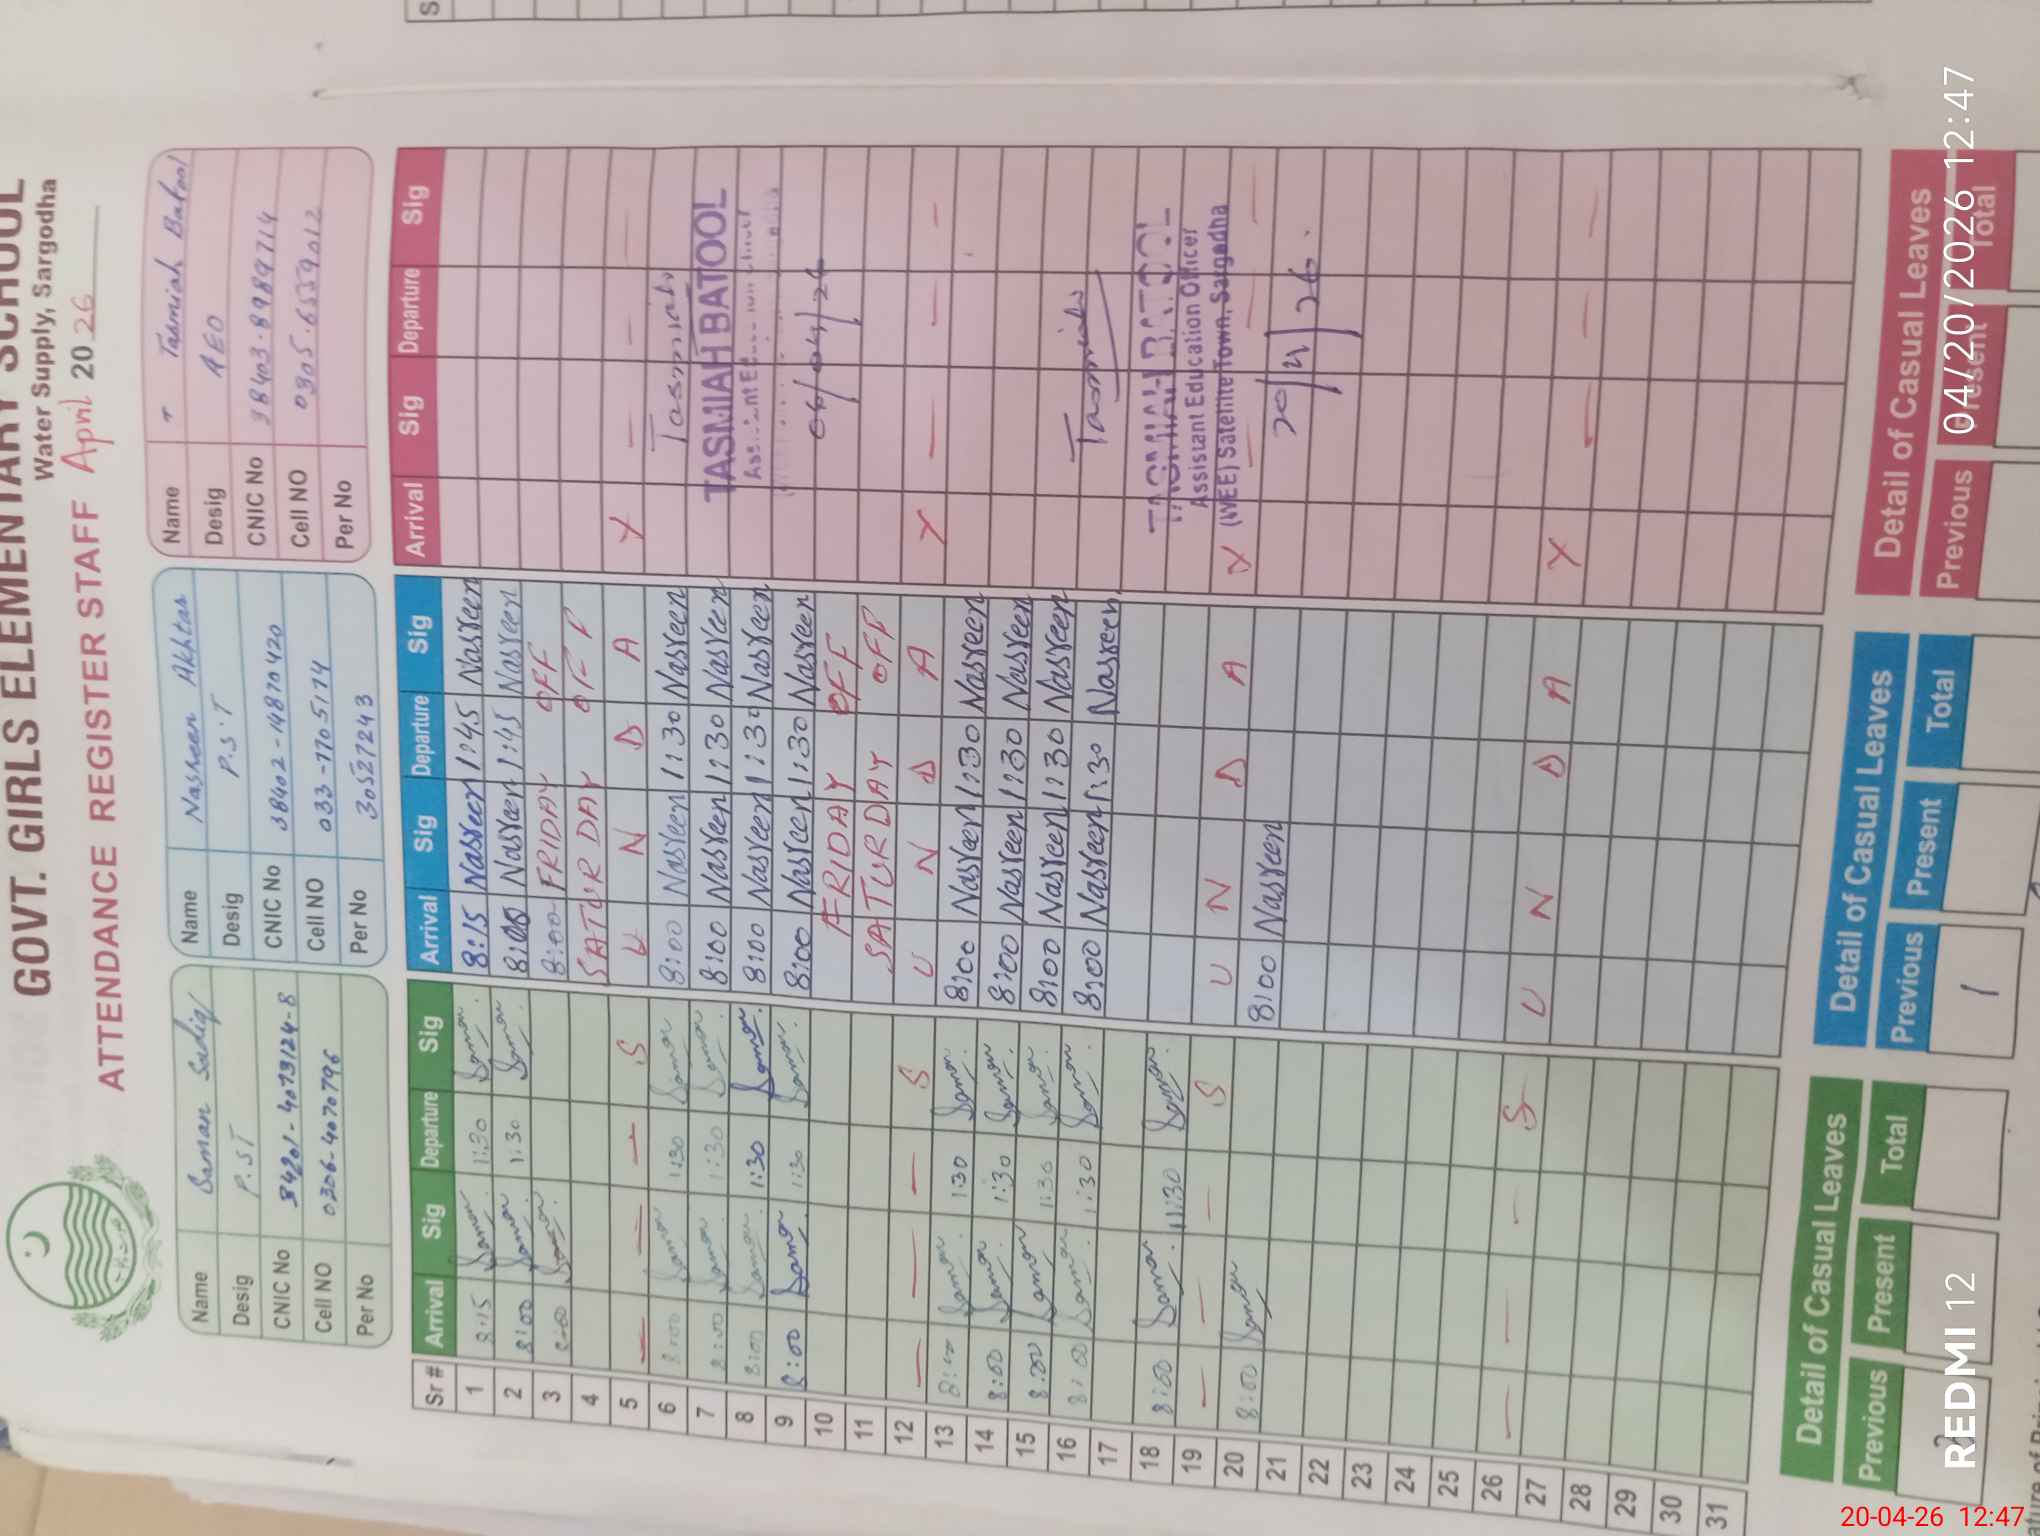 GOVT. GIRLS ELEMENTARY SCHOOL
Water Supply, Sargodha
ATTENDANCE REGISTER STAFF April 2026
Name Saman Sadiq
Desig P.S.T
CNIC No 38401-4073124-8
Cell NO 0306-4070796
Per No
Name Nasreen Akhtar
Desig P.S.T
CNIC No 38402-14870420
Cell NO 033-7705174
Per No 30527243
Name Tasmiah Batool
Desig AEO
CNIC No 38403-8989714
Cell NO 0305-6559012
Per No
Sr# Arrival Sig Departure Sig Arrival Sig Departure Sig Arrival Sig Departure Sig
1 8:15 Saman 1:30 Saman 8:15 Nasreen 1:45 Nasreen
2 8:00 Saman 1:30 Saman 8:00 Nasreen 1:45 Nasreen
3 8:00 Saman 8:00 FRIDAY OFF
4 SATURDAY OFF
5 — — — S U N D A Y — — —
6 8:00 Saman 1:30 Saman 8:00 Nasreen 1:30 Nasreen Tasmiah
7 8:00 Saman 1:30 Saman 8:00 Nasreen 1:30 Nasreen TASMIAH BATOOL
8 8:00 Saman 1:30 Saman 8:00 Nasreen 1:30 Nasreen
9 8:00 Saman 1:30 Saman 8:00 Nasreen 1:30 Nasreen 06/04/26
10 FRIDAY OFF
11 SATURDAY OFF
12 — — — S U N D A Y — — —
13 8:00 Saman 1:30 Saman 8:00 Nasreen 1:30 Nasreen
14 8:00 Saman 1:30 Saman 8:00 Nasreen 1:30 Nasreen
15 8:00 Saman 1:30 Saman 8:00 Nasreen 1:30 Nasreen
16 8:00 Saman 1:30 Saman 8:00 Nasreen 1:30 Nasreen Tasmiah
17
18 8:00 Saman 11:30 Saman TASMIAH BATOOL
Assistant Education Officer
19 — — — S U N D A Y (WEE) Satellite Town, Sargodha
20 8:00 Saman 8:00 Nasreen 20/4/26
21
22
23
24
25
26 — — — S U N D A Y — — —
27
28
29
30
31
Detail of Casual Leaves
Previous Present Total
Detail of Casual Leaves
Previous Present Total
1
Detail of Casual Leaves
Previous Present Total
REDMI 12
04/20/2026 12:47
20-04-26 12:47